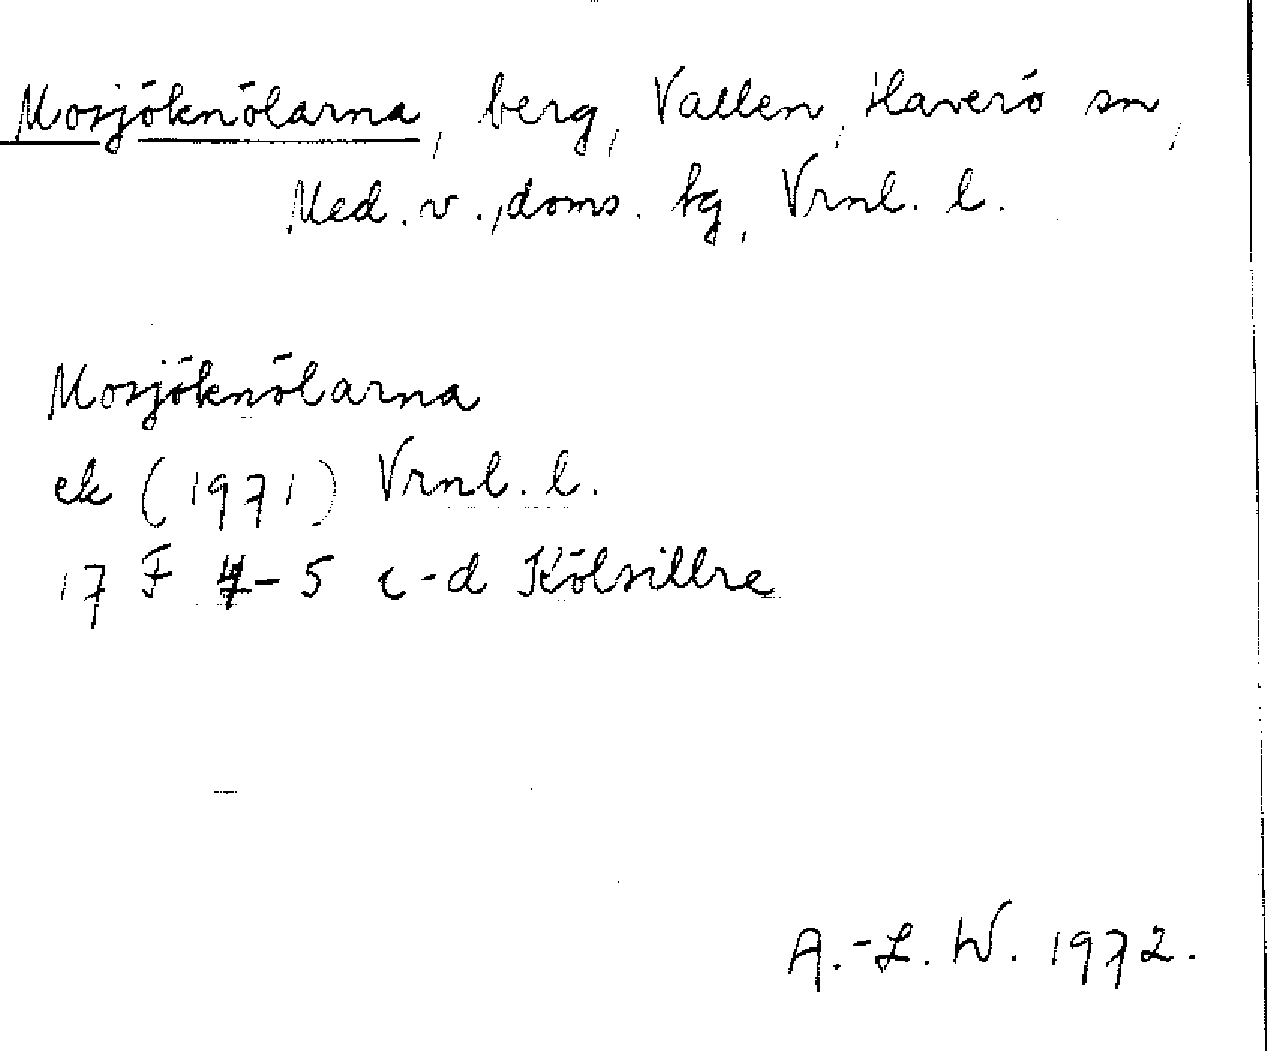 Mosjöknölarna, berg, Vallen, Haverö sn,
Med. v., doms. tg, Vrnl. l.
Mosjöknölarna
ek (1971) Vrnl. l.
17 F 4-5 c-d Kölsillre
A.-L. W. 1972.